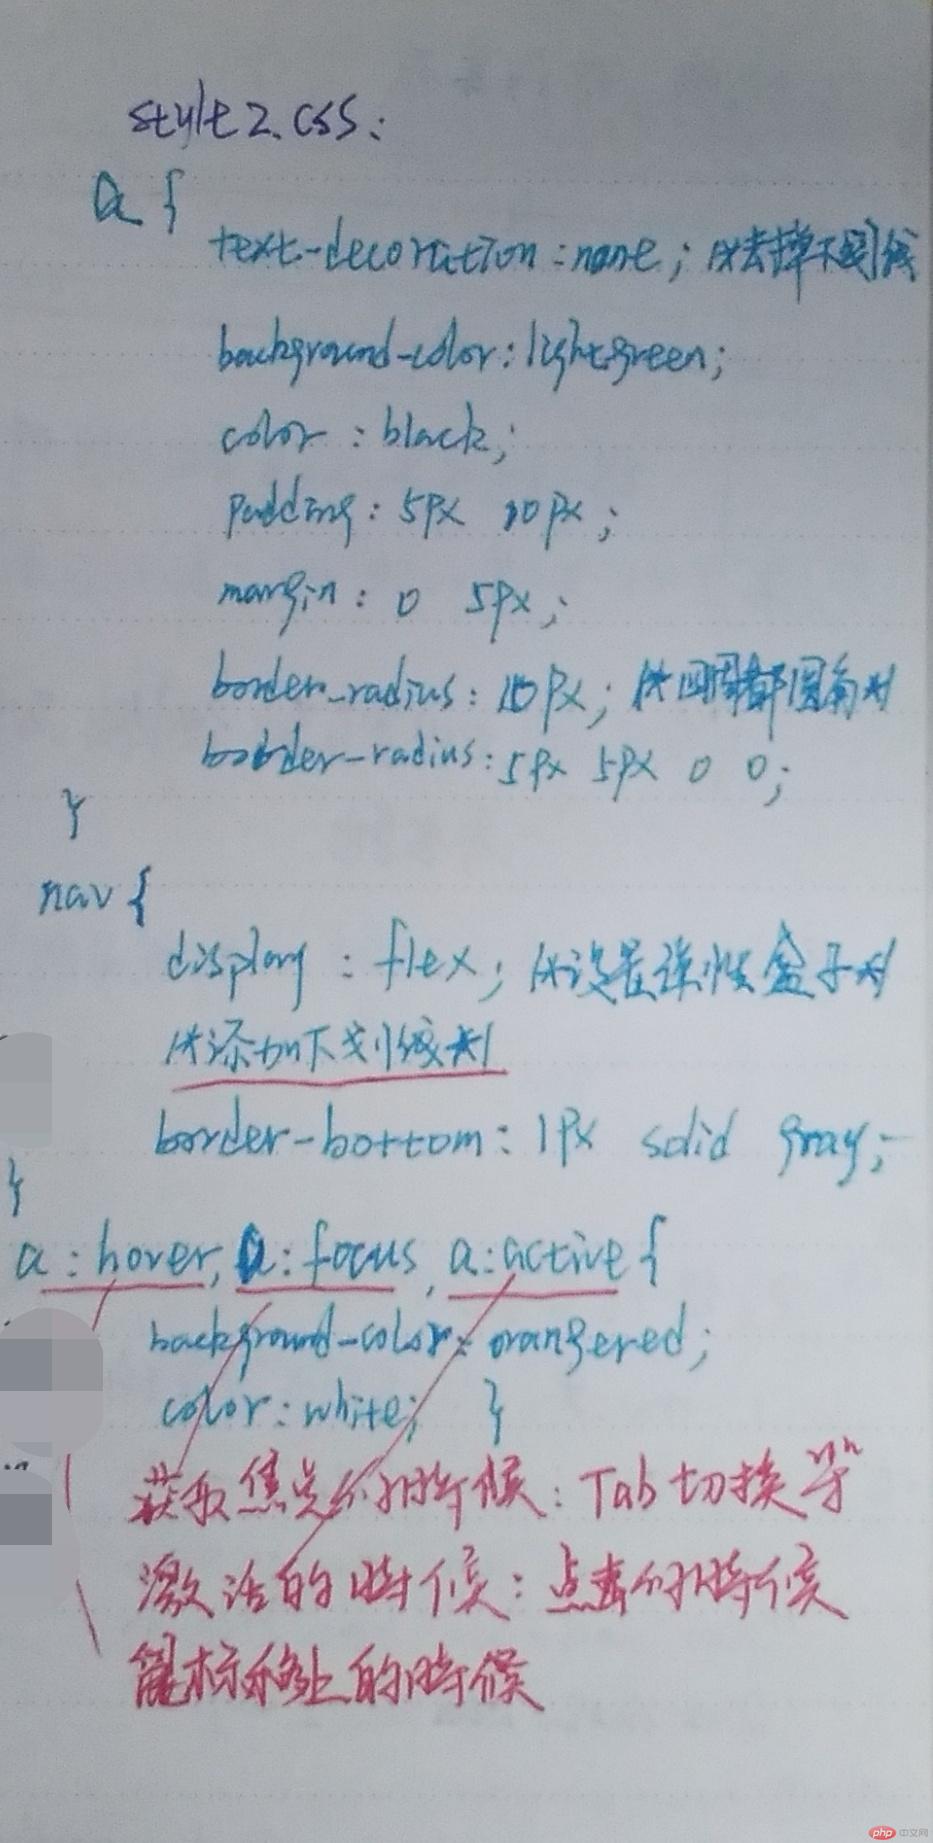 style2.css:
a {
text-decoration:none; /*去掉下划线
background-color:lightgreen;
color:black;
padding:5px 10px;
margin:0 5px;
border-radius:10px; /*四周都圆角*/
border-radius:5px 5px 0 0;
}
nav {
display:flex; /*设置弹性盒子*/
/*添加下划线*/
border-bottom:1px solid gray;
}
a:hover, a:focus, a:active {
background-color:orangered;
color:white; }
获取焦点的时候:Tab切换等
激活的时候:点击的时候
鼠标移上的时候
php 中文网